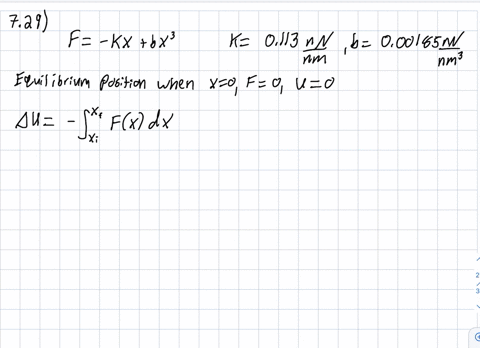 7.29)
F = -Kx + bx³   K = 0.113 nN/nm , b = 0.00185 nN/nm³
Equilibrium Position when x=0, F=0, U=0
ΔU = -∫_{xi}^{xf} F(x) dx
2
3